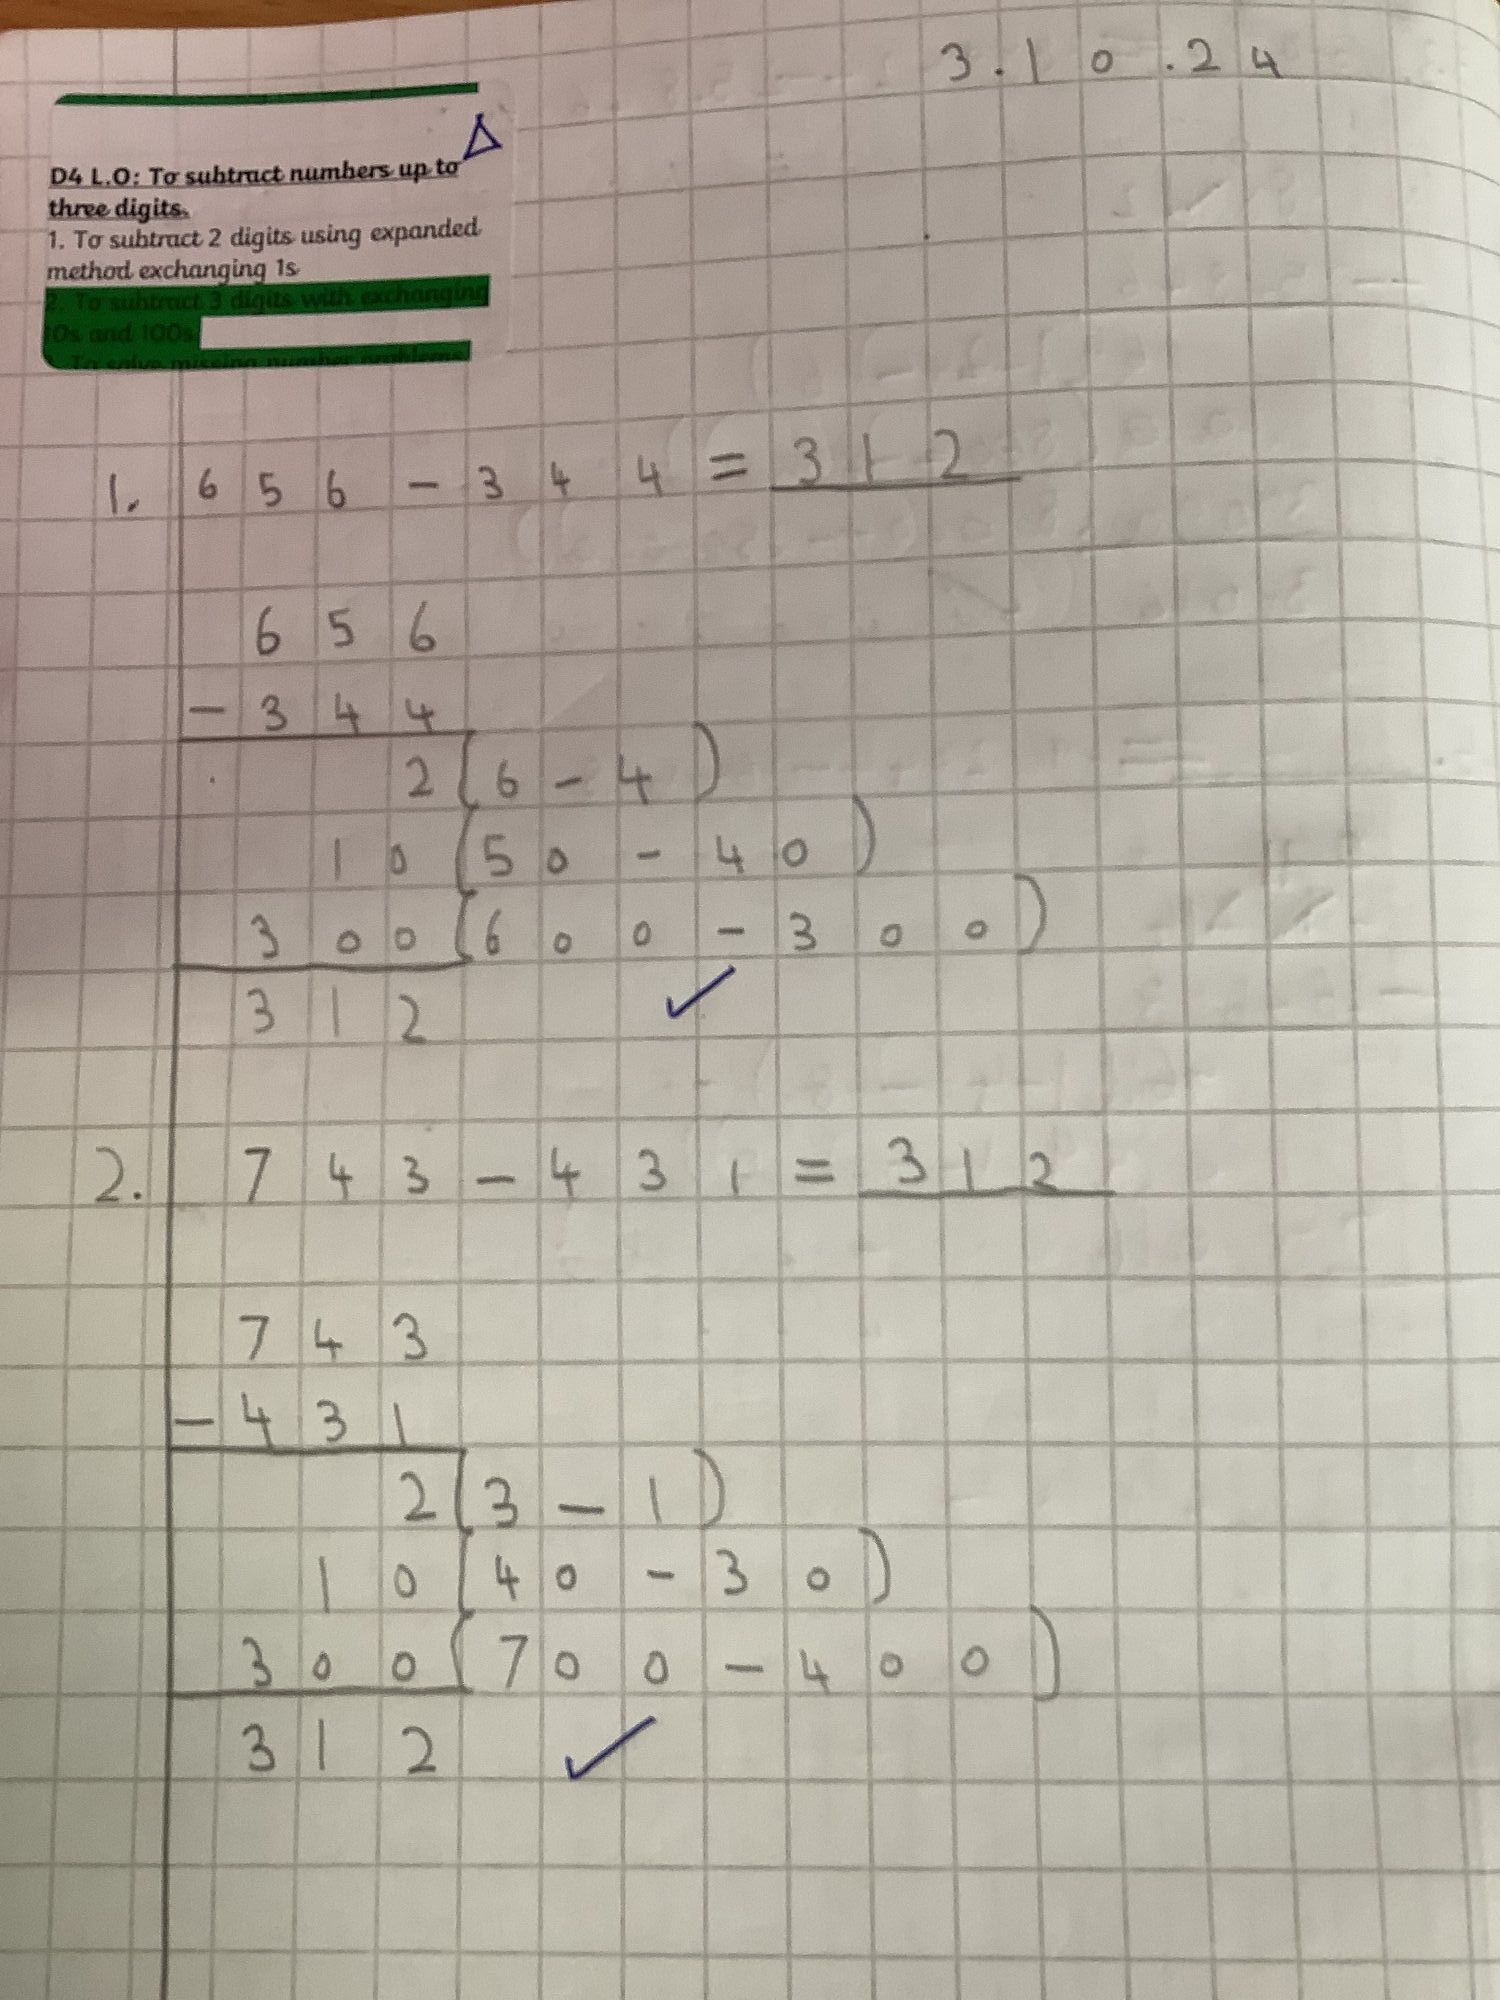 3.10.24
D4 L.O: To subtract numbers up to
three digits.
1. To subtract 2 digits using expanded
method exchanging 1s
2. To subtract 3 digits with exchanging
10s and 100s
To solve missing number problems
1. 656 - 344 = 312
656
- 344
2 (6 - 4)
10 (50 - 40)
300 (600 - 300)
312
2. 743 - 431 = 312
743
- 431
2 (3 - 1)
10 (40 - 30)
300 (700 - 400)
312